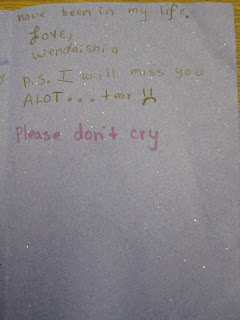 have been in my life.
Love,
Wendaishia
P.S. I will miss you
ALOT... tear
Please don't cry